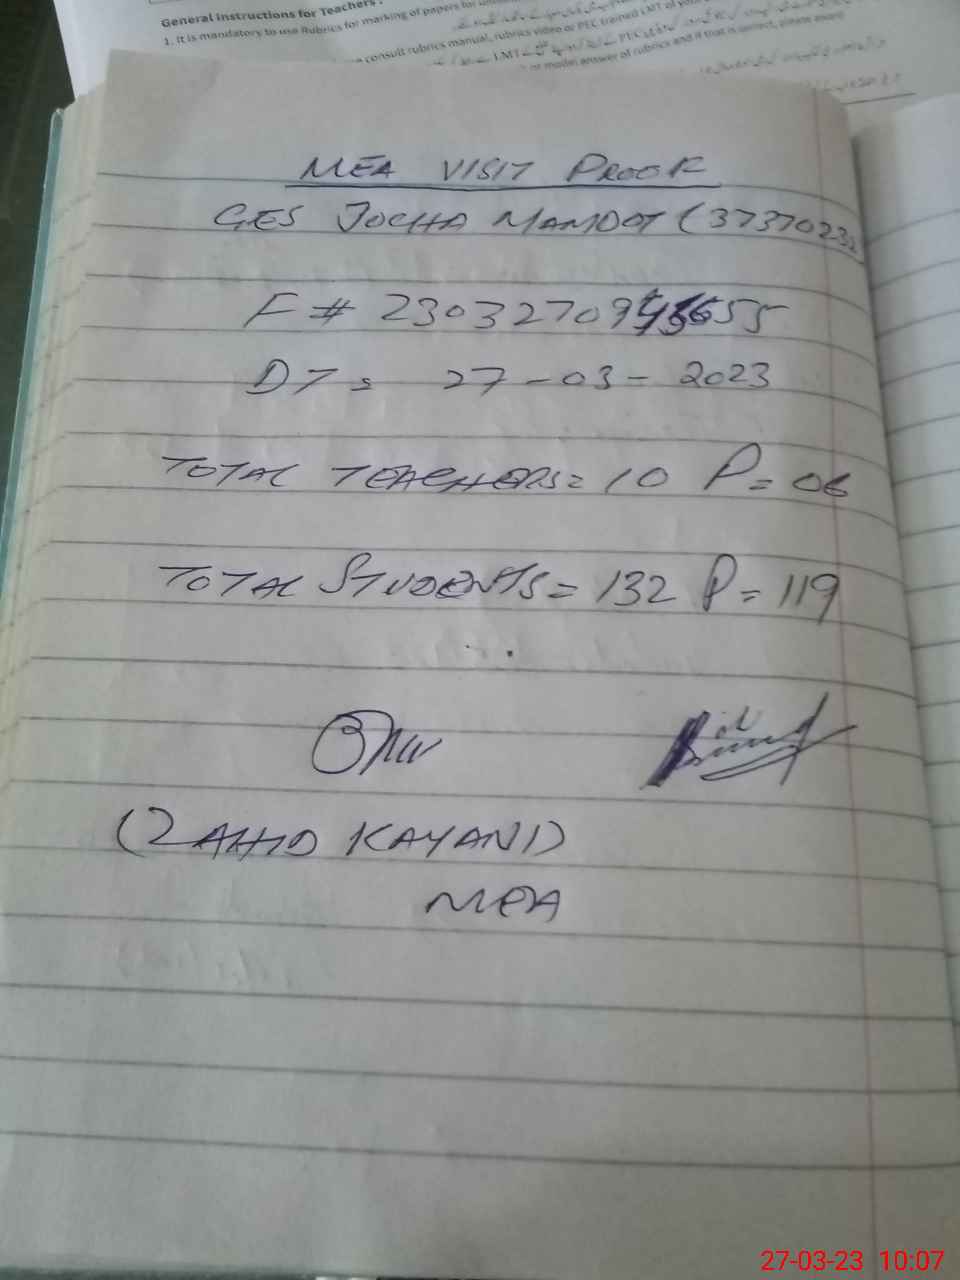 General Instructions for Teachers :
1. It is mandatory to use Rubrics for marking of papers for
consult rubrics manual, rubrics video or PEC trained LMT of your
or model answer of rubrics and if that is correct, please award
MEA VISIT PROOF
GES JOCHA MAMDOT (37370232
F # 2303270945655
DT = 27-03-2023
TOTAL TEACHERS = 10 P = 06
TOTAL STUDENTS = 132 P = 119
(ZAHID KAYANI)
MEA
27-03-23 10:07